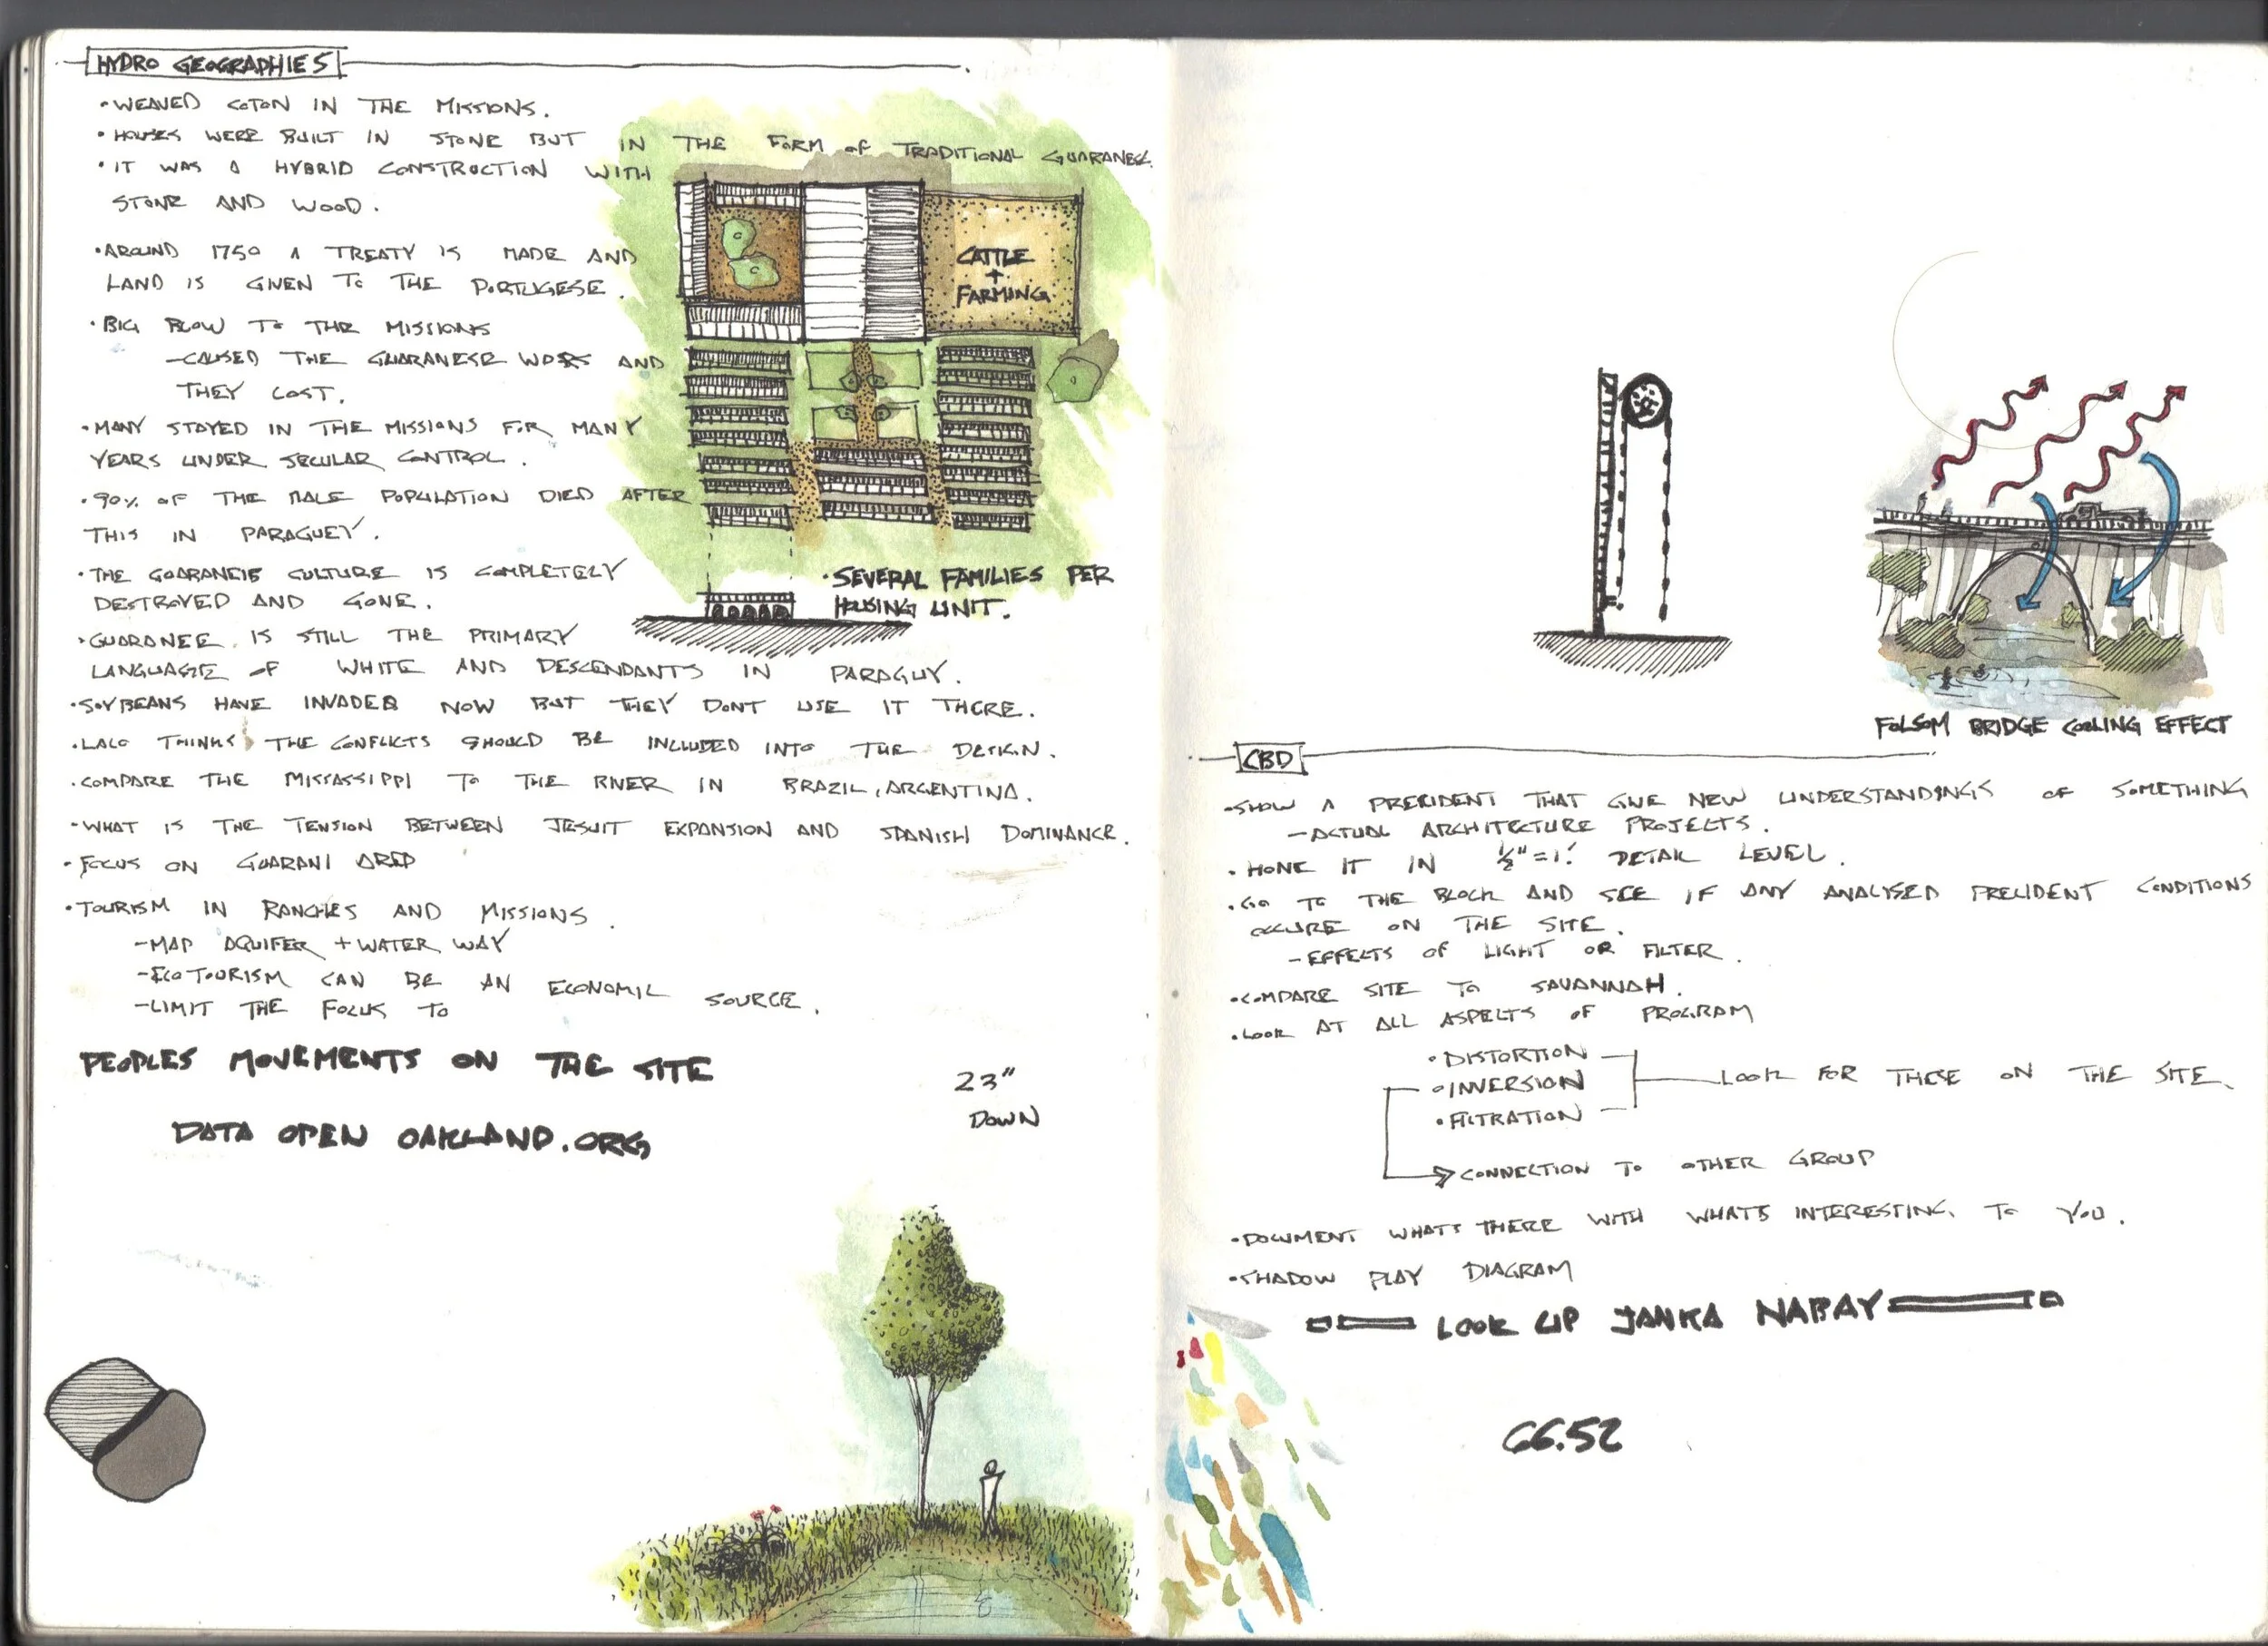 HYDRO GEOGRAPHIES
•WEAVED COTON IN THE MISSIONS.
•HOUSES WERE BUILT IN STONE BUT IN THE FORM OF TRADITIONAL GUARANESE.
•IT WAS A HYBRID CONSTRUCTION WITH
STONE AND WOOD.
•AROUND 1750 A TREATY IS MADE AND
LAND IS GIVEN TO THE PORTUGESE.
•BIG BLOW TO THE MISSIONS
-CAUSED THE GUARANESE AND
THEY LOST.
•MANY STAYED IN THE MISSIONS FOR MANY
YEARS UNDER SECULAR CONTROL.
•90% OF THE MALE POPULATION DIED AFTER
THIS IN PARAGUEY.
•THE CULTURE IS COMPLETELY
DESTROYED AND GONE.
•GUARANEE IS STILL THE PRIMARY
LANGUAGE OF WHITE AND DESCENDANTS IN PARAGUY.
•SOYBEANS HAVE INVADED NOW BUT THEY DONT USE IT THERE.
•LALO THINKS THE CONFLICTS SHOULD BE INCLUDED INTO THE DESIGN.
•COMPARE THE MISSISSIPPI TO THE RIVER IN BRAZIL, ARGENTINA.
•WHAT IS THE TENSION BETWEEN JESUIT EXPANSION AND SPANISH DOMINANCE.
•FOCUS ON GUARANI AREA
•TOURISM IN RANCHES AND MISSIONS.
-MAP AQUIFER + WATER WAY
-ECOTOURISM CAN BE AN ECONOMIC SOURCE.
-LIMIT THE FOCUS TO
CATTLE
+
FARMING
•SEVERAL FAMILIES PER
HOUSING UNIT.
PEOPLES MOVEMENTS ON THE SITE
DATA OPEN OAKLAND.ORG
23"
DOWN
FOLSOM BRIDGE COOLING EFFECT
CBD
•SHOW A PRECIDENT THAT GIVE NEW UNDERSTANDINGS OF SOMETHING
-ACTUAL ARCHITECTURE PROJECTS.
•HONE IT IN ½"=1' DETAIL LEVEL.
•GO TO THE BLOCK AND SEE IF ANY ANALISED PRECIDENT CONDITIONS
OCCURE ON THE SITE.
-EFFECTS OF LIGHT OR FILTER.
•COMPARE SITE TO SAVANNAH.
•LOOK AT ALL ASPECTS OF PROGRAM
•DISTORTION
•INVERSION
•FILTRATION
LOOK FOR THESE ON THE SITE.
CONNECTION TO OTHER GROUP
•DOCUMENT WHATS THERE WITH WHATS INTERESTING TO YOU.
•SHADOW PLAY DIAGRAM
LOOK UP JANKA NABAY
66.52